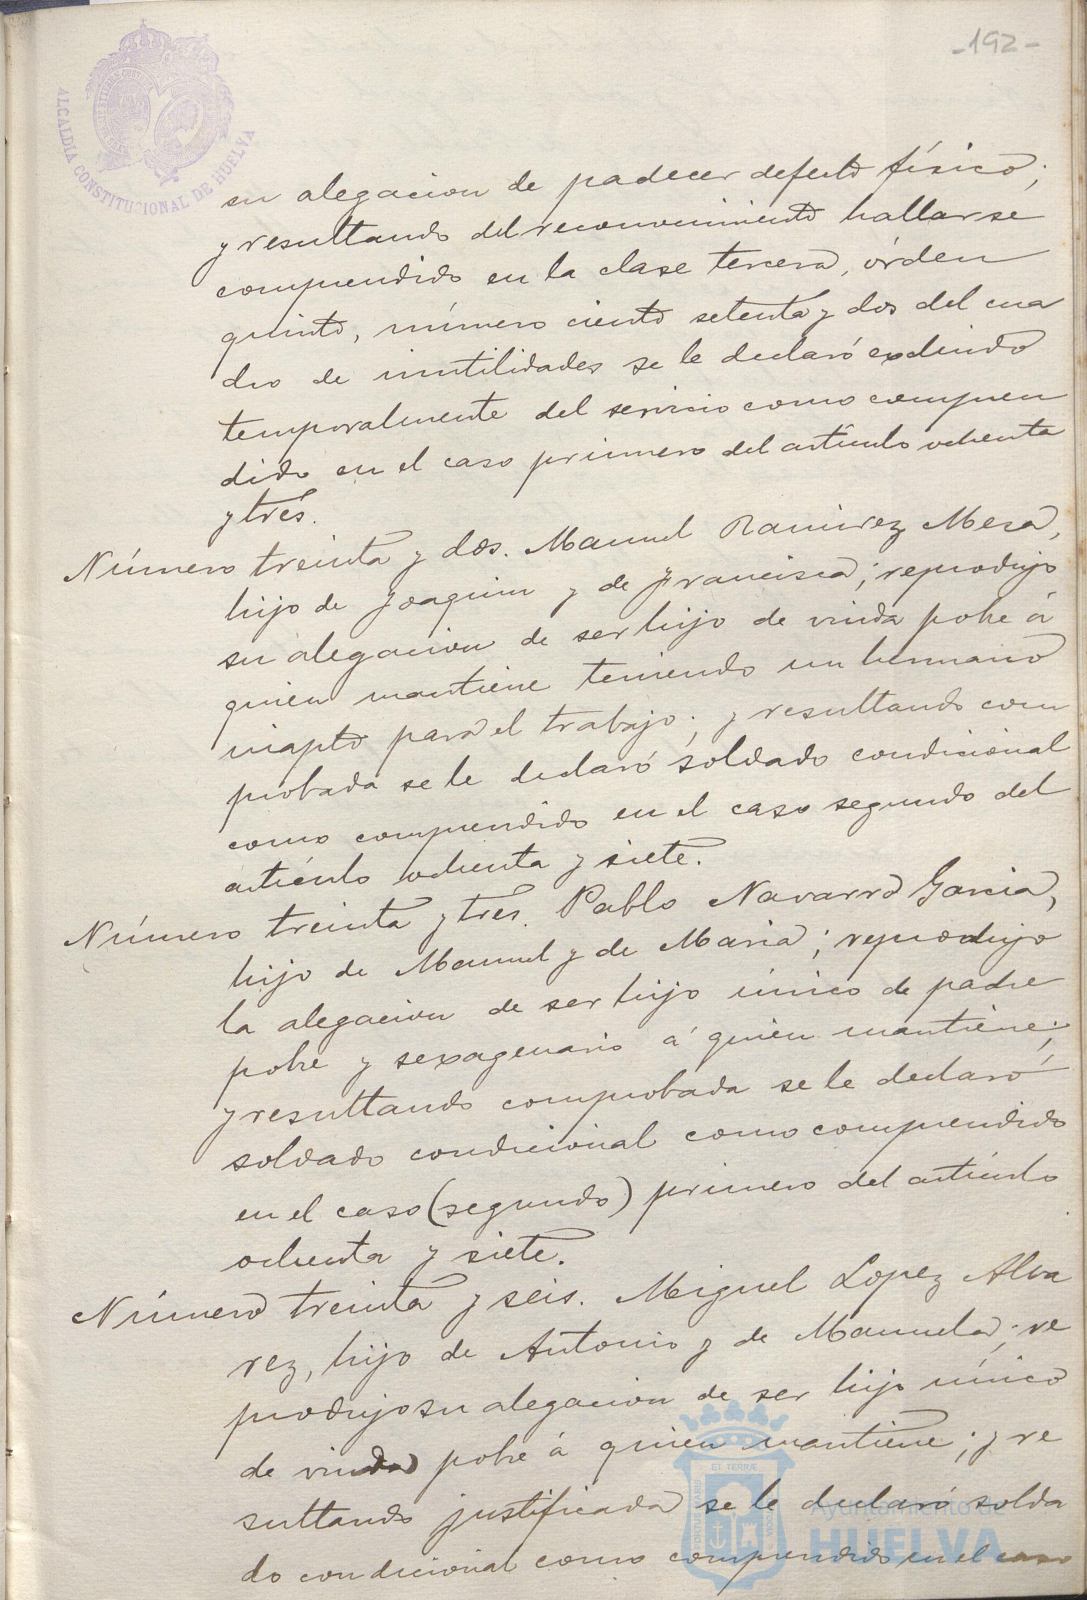 -192-
ALCALDIA CONSTITUCIONAL DE HUELVA
su alegacion de padecer defecto físico;
y resultando del reconocimiento hallarse
comprendido en la clase tercera, órden
quinto, número ciento setenta y dos del cua
dro de inutilidades se le declaró excluido
temporalmente del servicio como compren
dido en el caso primero del artículo ochenta
y tres.
Número treinta y dos. Manuel Ramirez Mesa,
hijo de Joaquin y de Francisca; reprodujo
su alegacion de ser hijo de viuda pobre á
quien mantiene teniendo un hermano
inapto para el trabajo; y resultando com
probada se le declaró soldado condicional
como comprendido en el caso segundo del
artículo ochenta y siete.
Número treinta y tres. Pablo Navarro Garcia,
hijo de Manuel y de Maria; reprodujo
la alegacion de ser hijo único de padre
pobre y sexagenario á quien mantiene;
y resultando comprobada se le declaró
soldado condicional como comprendido
en el caso (segundo) primero del artículo
ochenta y siete.
Número treinta y seis. Miguel Lopez Alva
rez, hijo de Antonio y de Manuela; re
produjo su alegacion de ser hijo único
de viuda pobre á quien mantiene; y re
sultando justificada se le declaró solda
do condicional como comprendido en el caso
Ayuntamiento de
HUELVA